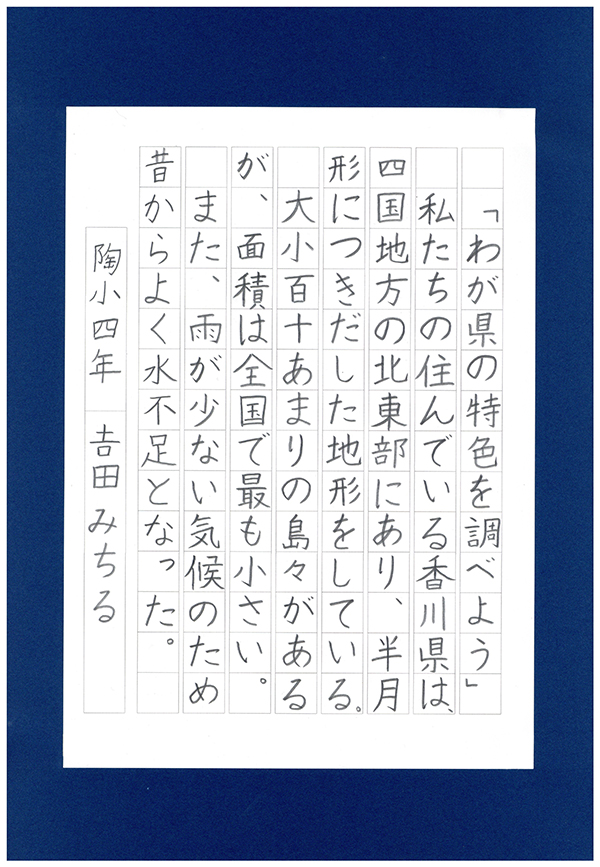 「わが県の特色を調べよう」
私たちの住んでいる香川県は、
四国地方の北東部にあり、半月
形につきだした地形をしている。
大小百十あまりの島々がある
が、面積は全国で最も小さい。
また、雨が少ない気候のため
昔からよく水不足となった。
陶小四年 𠮷田みちる